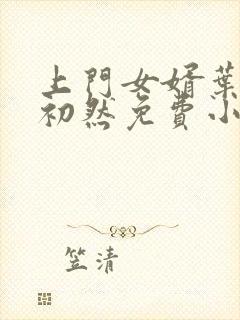 上門女婿葉
初然免費小
笠清